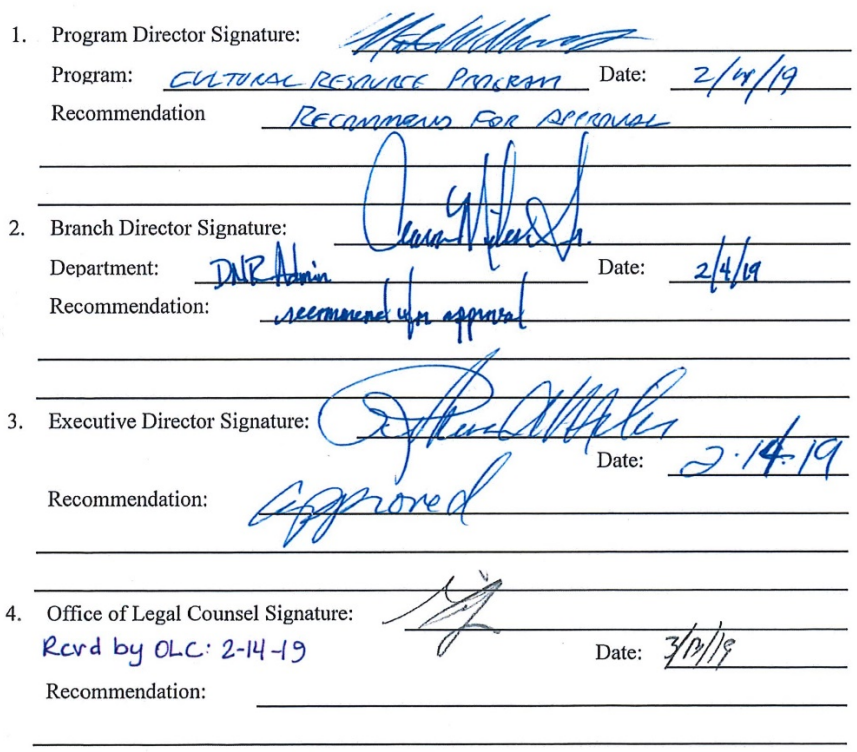 1. Program Director Signature:
Program: CULTURAL RESOURCE PROGRAM Date: 2/14/19
Recommendation RECOMMEND FOR APPROVAL
2. Branch Director Signature:
Department: DNR Admin Date: 2/4/19
Recommendation: recommend for approval
3. Executive Director Signature:
Date: 2-14-19
Recommendation: approved
4. Office of Legal Counsel Signature:
Rcvd by OLC: 2-14-19 Date: 3/13/19
Recommendation: